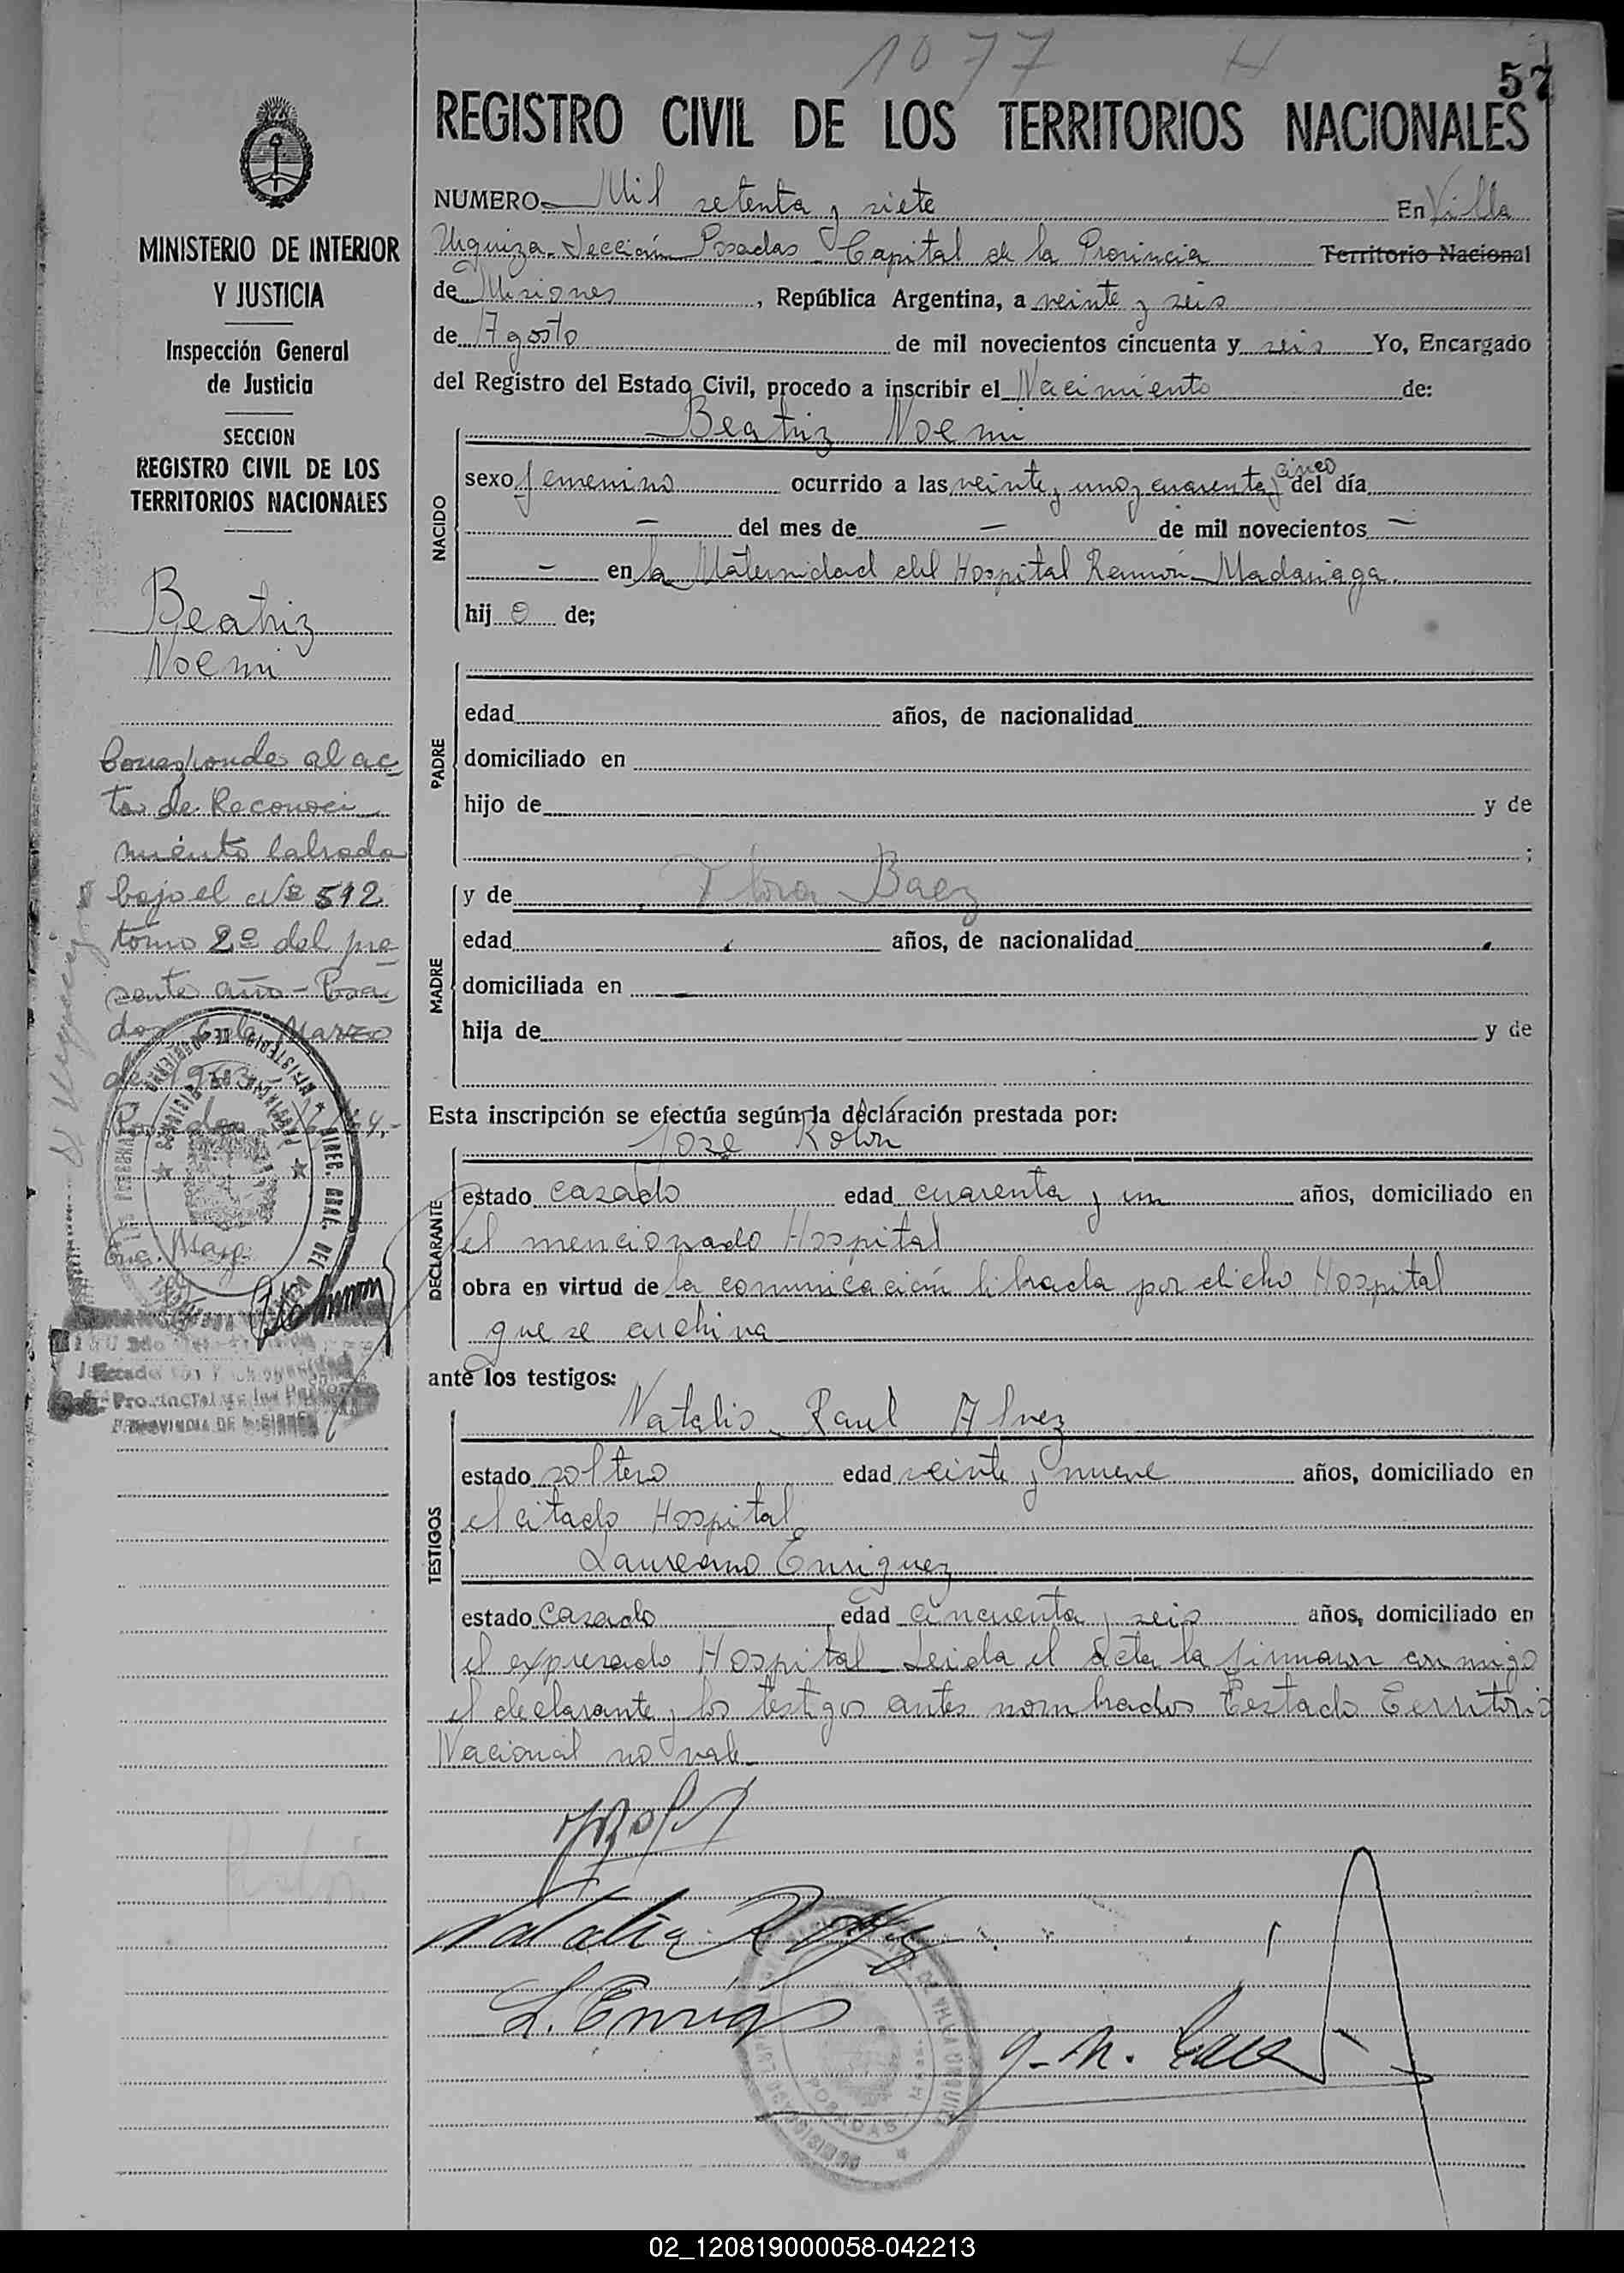 1077
57
REGISTRO CIVIL DE LOS TERRITORIOS NACIONALES
NUMERO Mil setenta y siete En Villa
Urquiza - Sección Posadas - Capital de la Provincia Territorio Nacional
de Misiones, República Argentina, a veinte y seis
de Agosto de mil novecientos cincuenta y seis Yo, Encargado
del Registro del Estado Civil, procedo a inscribir el Nacimiento de:
Beatriz Noemi
NACIDO
sexo femenino ocurrido a las veinte y uno y cuarenta y cinco del día
— del mes de — de mil novecientos —
— en la Maternidad del Hospital Ramón Madariaga.
hij o de;
PADRE
edad años, de nacionalidad
domiciliado en
hijo de y de
;
MADRE
y de Flora Baez
edad años, de nacionalidad
domiciliada en
hija de y de
Esta inscripción se efectúa según la declaración prestada por:
José Rolón
DECLARANTE
estado casado edad cuarenta y un años, domiciliado en
el mencionado Hospital
obra en virtud de la comunicación librada por dicho Hospital
que se archiva
ante los testigos:
Natalio Raul Alvez
TESTIGOS
estado soltero edad veinte y nueve años, domiciliado en
el citado Hospital
Laureano Enriquez
estado casado edad cincuenta y seis años, domiciliado en
el expresado Hospital - Leida el acta la firmaron conmigo
el declarante y los testigos antes nombrados Testado Territorio
Nacional no vale
L. Enriq
POSADAS
MINISTERIO DE INTERIOR
Y JUSTICIA
Inspección General
de Justicia
SECCION
REGISTRO CIVIL DE LOS
TERRITORIOS NACIONALES
Beatriz
Noemi
Corresponde al ac-
ta de Reconoci-
miento labrada
bajo el Nº 512
tomo 2º del pre-
sente año - Posa-
das, Marzo
de
PROVINCIA DE MISIONES
02_120819000058-042213